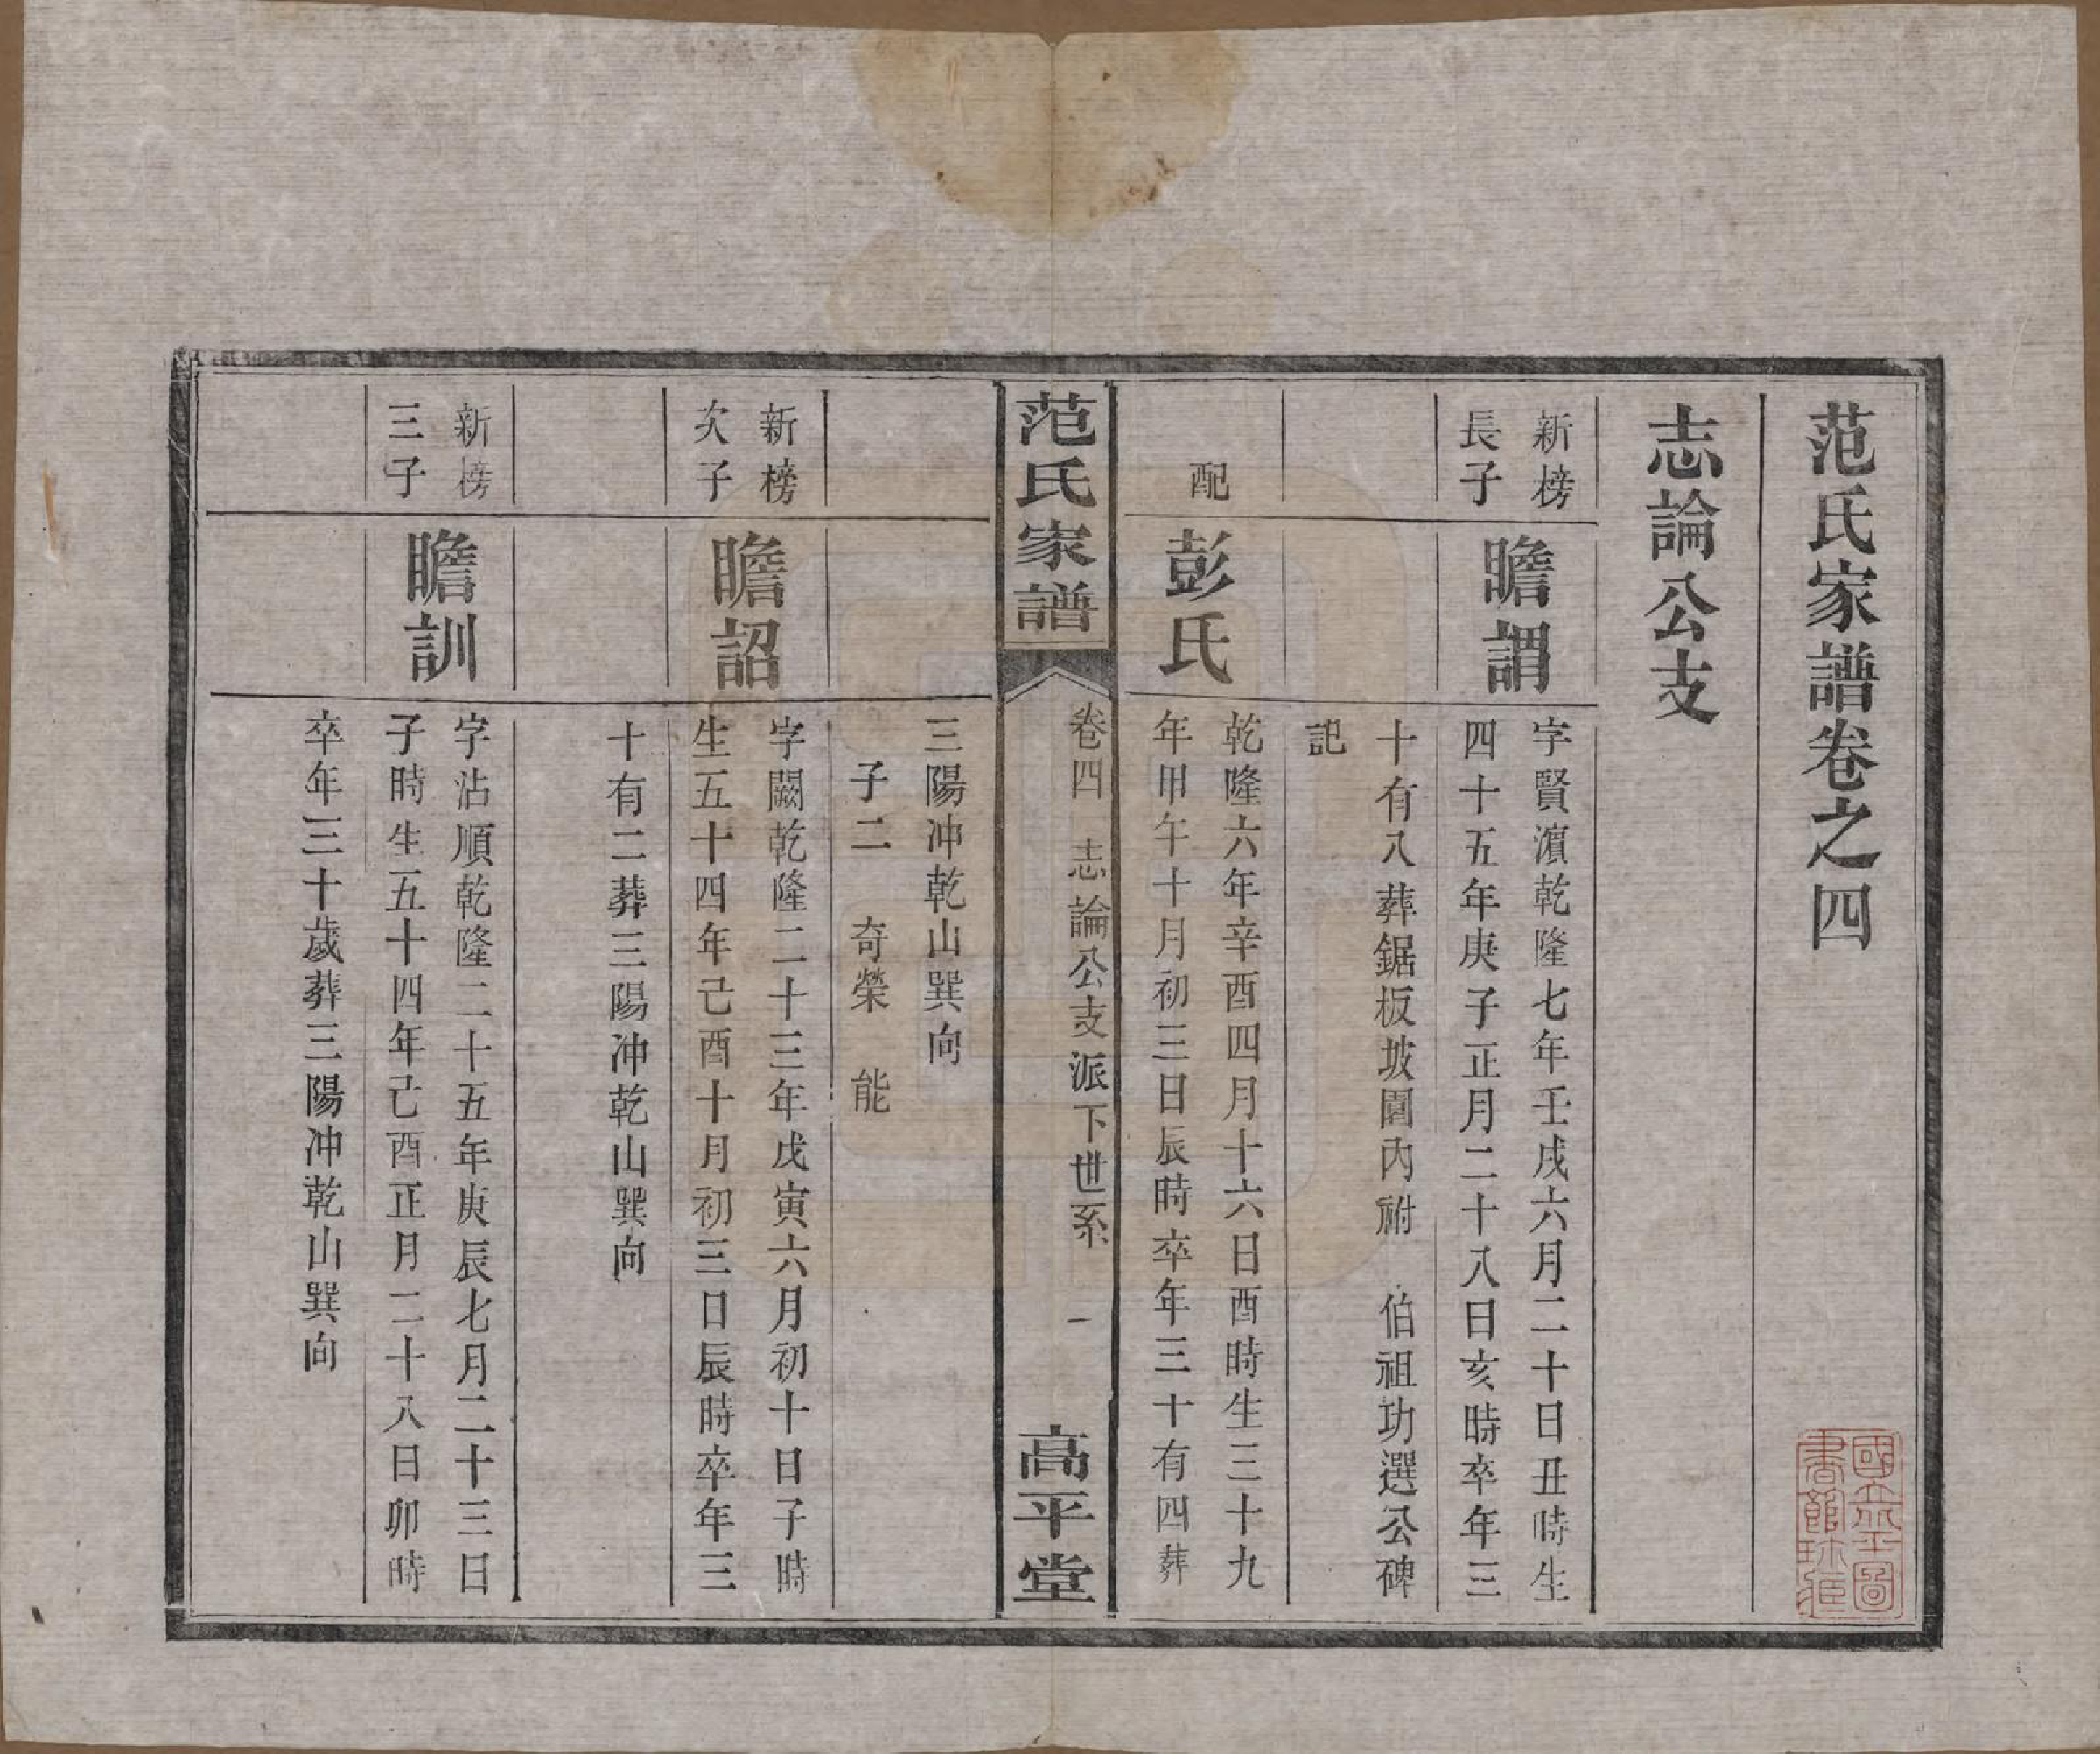 范氏家譜卷之四
志論公支
新榜
長子
瞻謂
字賢濵乾隆七年壬戌六月二十日丑時生
四十五年庚子正月二十八日亥時卒年三
十有八葬鋸板坡園內祔　伯祖功選公碑
記
配
彭氏
乾隆六年辛酉四月十六日酉時生三十九
年甲午十月初三日辰時卒年三十有四葬
范氏家譜
卷四　志論公支派下世系　一
高平堂
三陽冲乾山巽向
子二　奇榮　能
新榜
次子
瞻詔
字闕乾隆二十三年戊寅六月初十日子時
生五十四年己酉十月初三日辰時卒年三
十有二葬三陽冲乾山巽向
新榜
三子
瞻訓
字沾順乾隆二十五年庚辰七月二十三日
子時生五十四年己酉正月二十八日卯時
卒年三十歲葬三陽冲乾山巽向
國立北平圖
書館珍藏